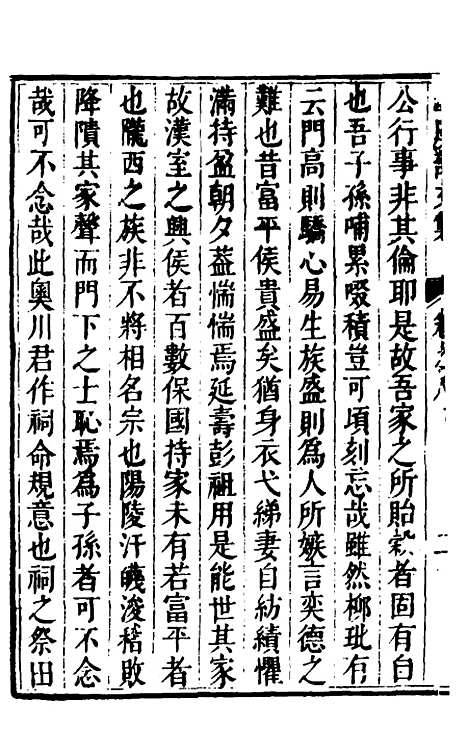 公行事非其倫耶是故吾家之所貽穀者固有自
也吾子孫哺累啜積豈可頃刻忘哉雖然柳玭有
云門高則驕心易生族盛則為人所嫉言奕德之
難也昔富平侯貴盛矣猶身衣弋綈妻自紡績懼
滿持盈朝夕葢惴惴焉延壽彭祖用是能世其家
故漢室之興侯者百數保國持家未有若富平者
也隴西之族非不將相名宗也陽陵汗衊浚稽敗
降隤其家聲而門下之士恥焉為子孫者可不念
哉可不念哉此奧川君作祠命規意也祠之祭田